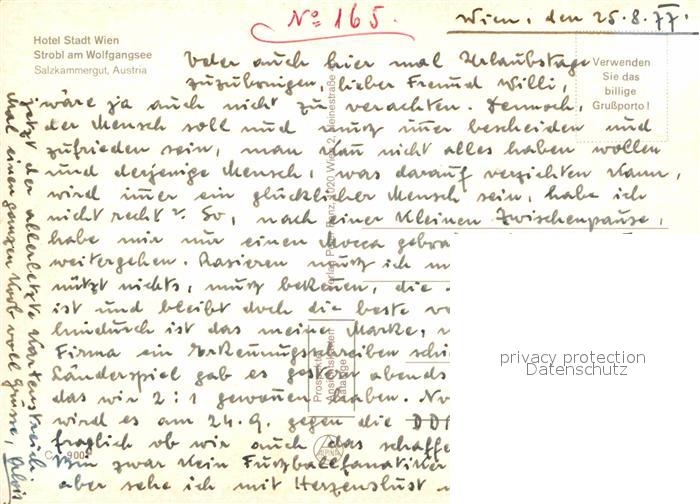 Nº 165.
Wien, den 25.8.77.
Hotel Stadt Wien
Strobl am Wolfgangsee
Salzkammergut, Austria
Verwenden
Sie das
billige
Grußporto!
Oder auch hier mal Urlaubstage
zuzubringen, lieber Freund Willi,
wäre ja auch nicht zu verachten. Dennoch,
der Mensch soll und muss imer bescheiden und
zufrieden sein, man kan nicht alles haben wollen
und derjenige Mensch, was darauf verzichten kann,
wird imer ein glücklicher Mensch sein, habe ich
nicht recht? So, nach einer kleinen Zwischenpause,
habe mir nur einen Mocca
weitergehen. Rasieren muss ich
nützt nichts, muss bekennen, die
ist und bleibt doch die beste
hindurch ist das meine Marke,
Firma ein Erkennungsschreiben
Länderspiel gab es gestern abends
das wir 2:1 gewonnen haben.
wird es am 24.9. gegen die DD
fraglich ob wir auch das
Bin zwar kein Fussballfanatiker
aber sehe ich mit Herzenslust
jetzt der allerletzte Kartenstreich
mal einen ganzen Korb voll Grüsse, Alois
Prospekte
Ansichtskarten
Kataloge
ALPINA
privacy protection
Datenschutz